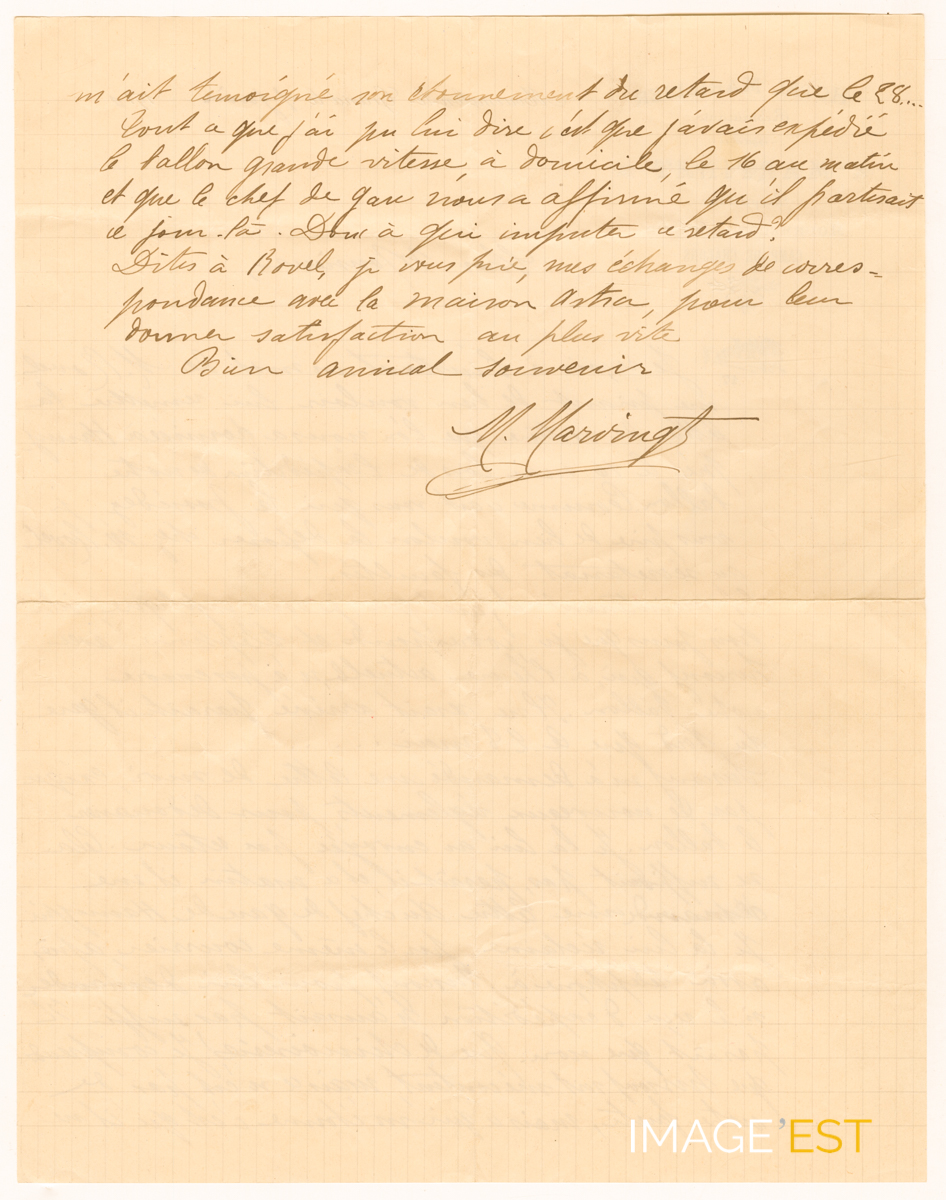 m'ait temoigné son étonnement du retard que le 28...
Tout ce que j'ai pu lui dire c'est que j'avais expédié
le ballon grande vitesse à domicile, le 16 au matin
et que le chef de gare nous a affirmé qu'il partirait
ce jour-là. Donc à qui imputer ce retard?
Dites à Rovel, je vous prie, mes échanges de corres=
pondance avec la maison Astra, pour leur
donner satisfaction au plus vite
Bien amical souvenir
M. Marvingt
IMAGE'EST